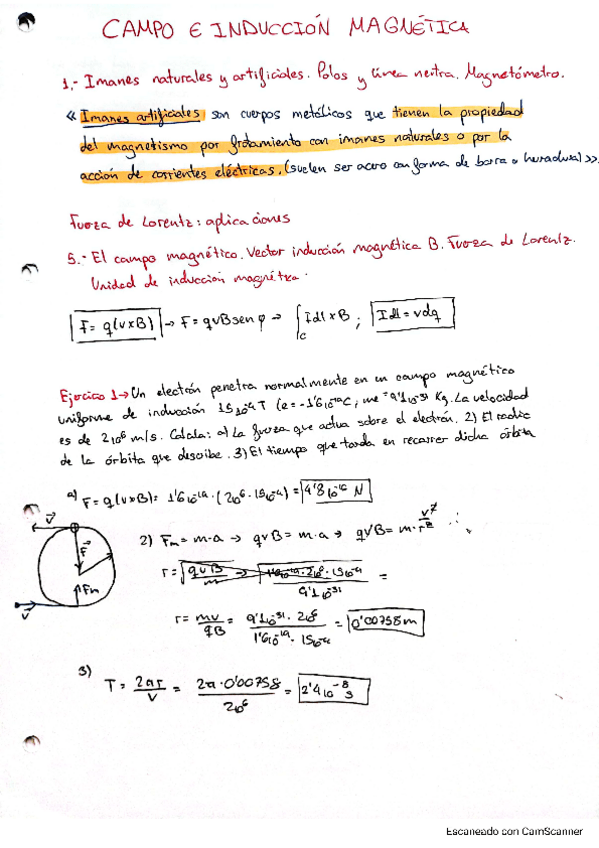 CAMPO E INDUCCIÓN MAGNÉTICA
1.- Imanes naturales y artificiales. Polos y línea neutra. Magnetómetro.
« Imanes artificiales son cuerpos metálicos que tienen la propiedad
del magnetismo por frotamiento con imanes naturales o por la
acción de corrientes eléctricas. (suelen ser acero con forma de barra o herradura) ».
Fuerza de Lorentz: aplicaciones
5.- El campo magnético. Vector inducción magnética B. Fuerza de Lorentz.
Unidad de inducción magnética.
F = q(v×B) → F = qvB sen φ → ∫c Idl × B ; Idl = vdq
Ejercicio 1 → Un electrón penetra normalmente en un campo magnético
uniforme de inducción 15 10⁻⁴ T (e = -1'6 10⁻¹⁹ C, me = 9'1 10⁻³¹ Kg. La velocidad
es de 2 10⁶ m/s. Calcula: a) La fuerza que actúa sobre el electrón. 2) El radio
de la órbita que describe. 3) El tiempo que tarda en recorrer dicha órbita
a) F = q(v×B) = 1'6 10⁻¹⁹ · (2 10⁶ · 15 10⁻⁴) = 4'8 10⁻¹⁶ N
2) Fm = m·a → qvB = m·a → qvB = m·
r = mv/qB = 9'1 10⁻³¹ · 2 10⁶ / 1'6 10⁻¹⁹ · 15 10⁻⁴ = 0'00758 m
v F Fm v
3) T = 2πr/v = 2π · 0'00758 / 2 10⁶ = 2'4 10⁻⁸ s
Escaneado con CamScanner